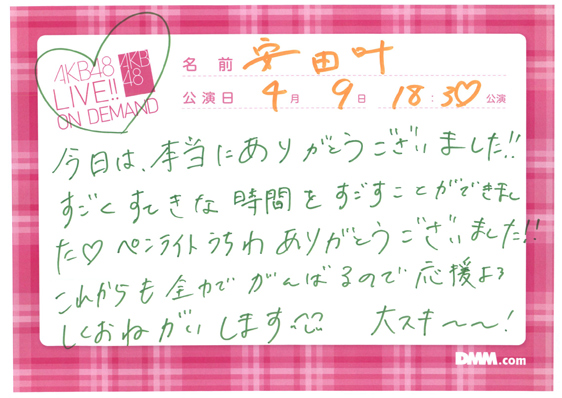 AKB48
LIVE!!
ON DEMAND
AKB
48
名前 安田叶
公演日 4月 9日 18:30♡公演
今日は、本当にありがとうございました!!
すごくすてきな時間をすごすことができまし
た♡ ペンライトうちわ ありがとうございました!!
これからも全力でがんばるので応援よろ
しくおねがいします 大スキ〜〜!
DMM.com